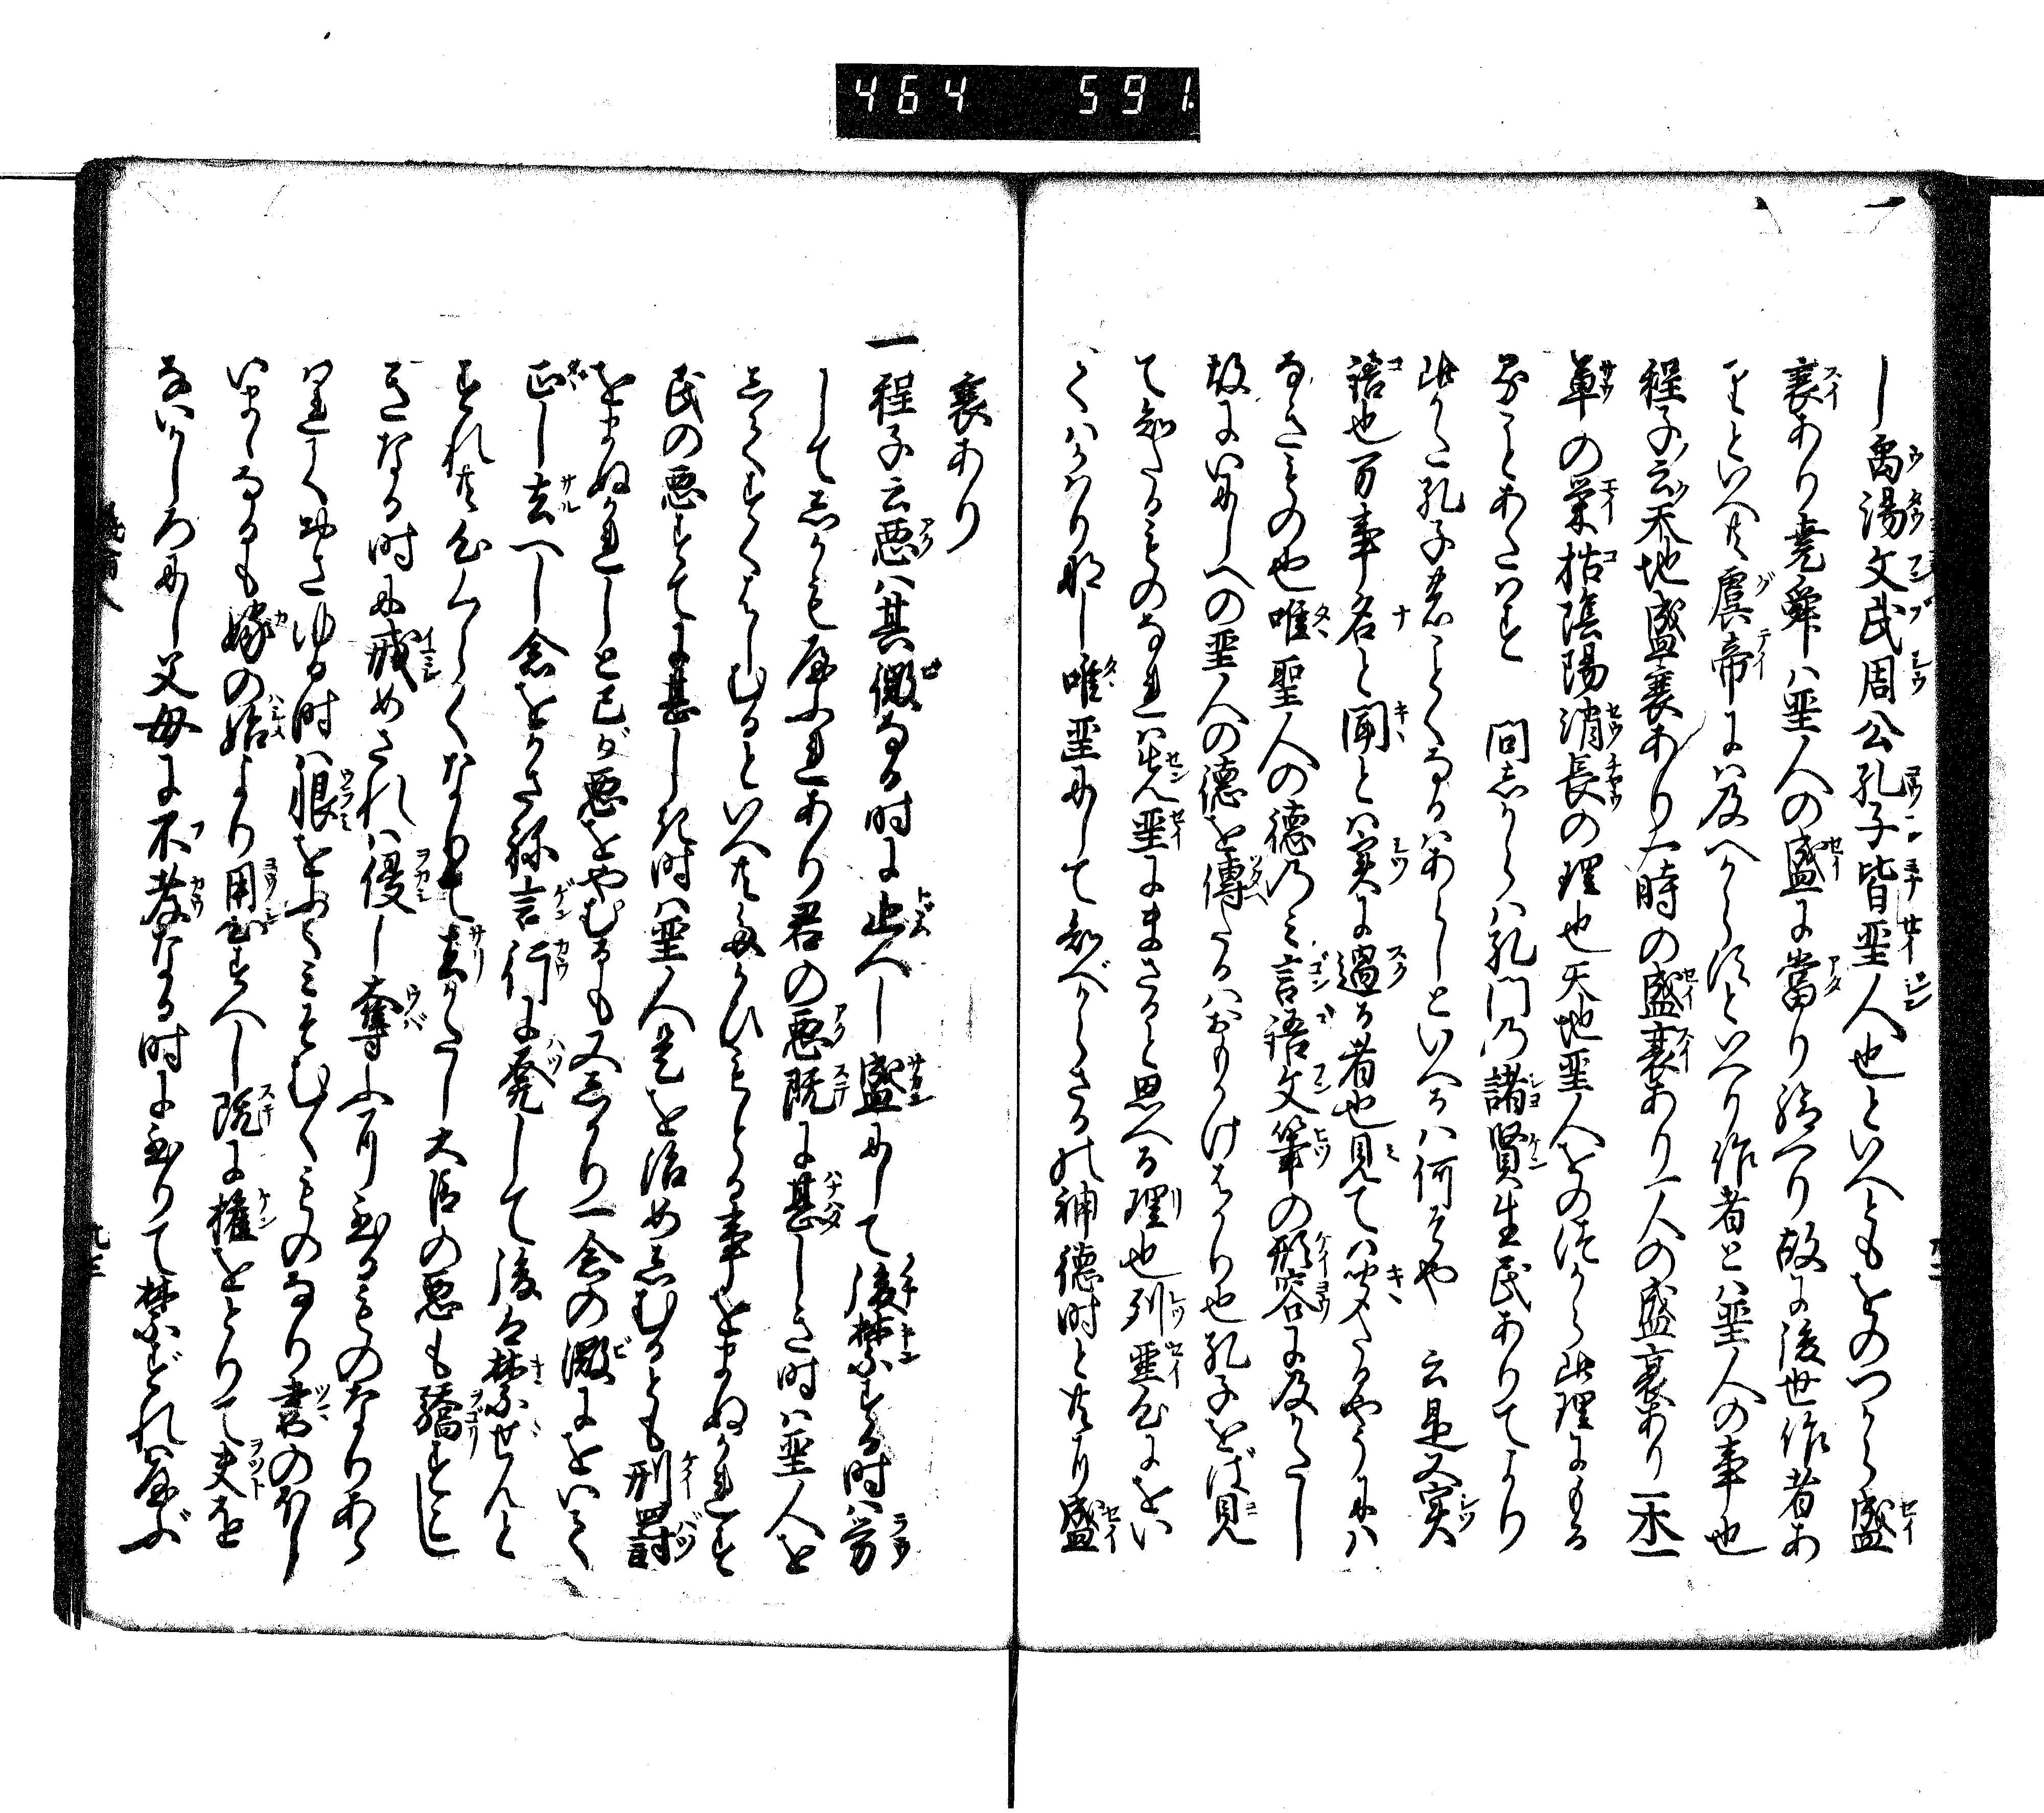 464 591
し禹湯文武周公孔子皆聖人也といへともをのつから盛
衰あり堯舜ハ聖人の盛に當り給へり故に後世作者あ
りといへ共虞帝にハ及へからずといへり作者とハ聖人の事也
程子云天地盛衰あり一時の盛衰あり一人の盛衰あり一木一
草の栄枯陰陽消長の理也天地聖人をのづから此理にもる
ることあたハず 問しからハ孔門の諸賢生民ありてより
此かた孔子のことくなるハあらしといへるハ何そや 云是又実
語也万事名と聞とハ実に過る者也見てハ聞たるやうにハ
なきもの也唯聖人の徳のミ言語文筆の形容に及かたし
故にいにしへの聖人の徳を傳たるハおもかけはかり也孔子をば見
て知たるものなれハ先聖にまさると思へる理也列聖にをい
てハかはり那し唯聖にして知べからさるの神徳時と共に盛
衰あり
一程子云悪ハ其微なる時に止へし盛にして後禁ずる時ハ労
して しかも 破れあり君の悪既に甚しき時ハ聖人を
してたすけしむるといへ共たかひもとる事をまぬかれず
民の悪すてに甚しき時ハ聖人是を治めしむるとも刑罸
をまぬかれしと己が悪をやむるも又しかり一念の微にをいて
正し去へし念をかさね言行に発して後に禁せんと
すれ共
なりて去かたし大臣の悪も驕すこし
きなる時に戒めされハ優し奪ふに至るものなりあら
ゆる時ハ恨をふくミそむくものなり妻のすこし
なるも嫁の始より用心すへし既に權をとりて夫を
ないかしろにし父母に不孝なる時に至りて禁ずれハ